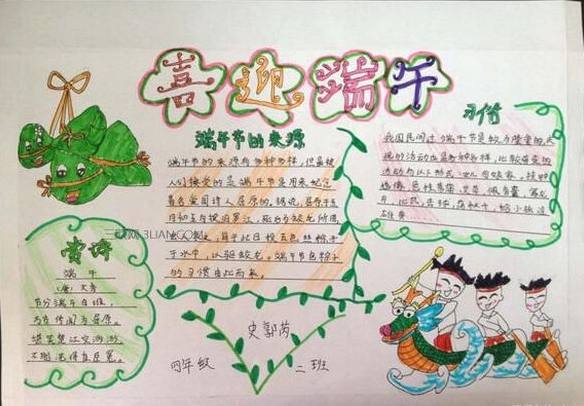 喜迎端午
端午节的来源
端午节的来源有多种多样，但最被
人们接受的是端午节是用来纪念
著名爱国诗人屈原的。据说，屈原于五
月初五自投汨罗江，死后为蛟龙所困
于水中，以驱蛟龙，端午节包粽子
的习惯由此而来。
习俗
我国民间过端午节是较为隆重的，庆
祝的活动也是各种各样，比较普遍的
活动有以下形式：女儿回娘家，挂钟
馗像，悬挂菖蒲、艾草，佩香囊，赛龙
舟，比武，击球，荡秋千，给小孩涂
赏诗
端午
（唐）文秀
节分端午自谁，
万古传闻为屈原。
堪笑楚江空渺渺
不能洗得直臣冤。
史郭芮
四年级 二班